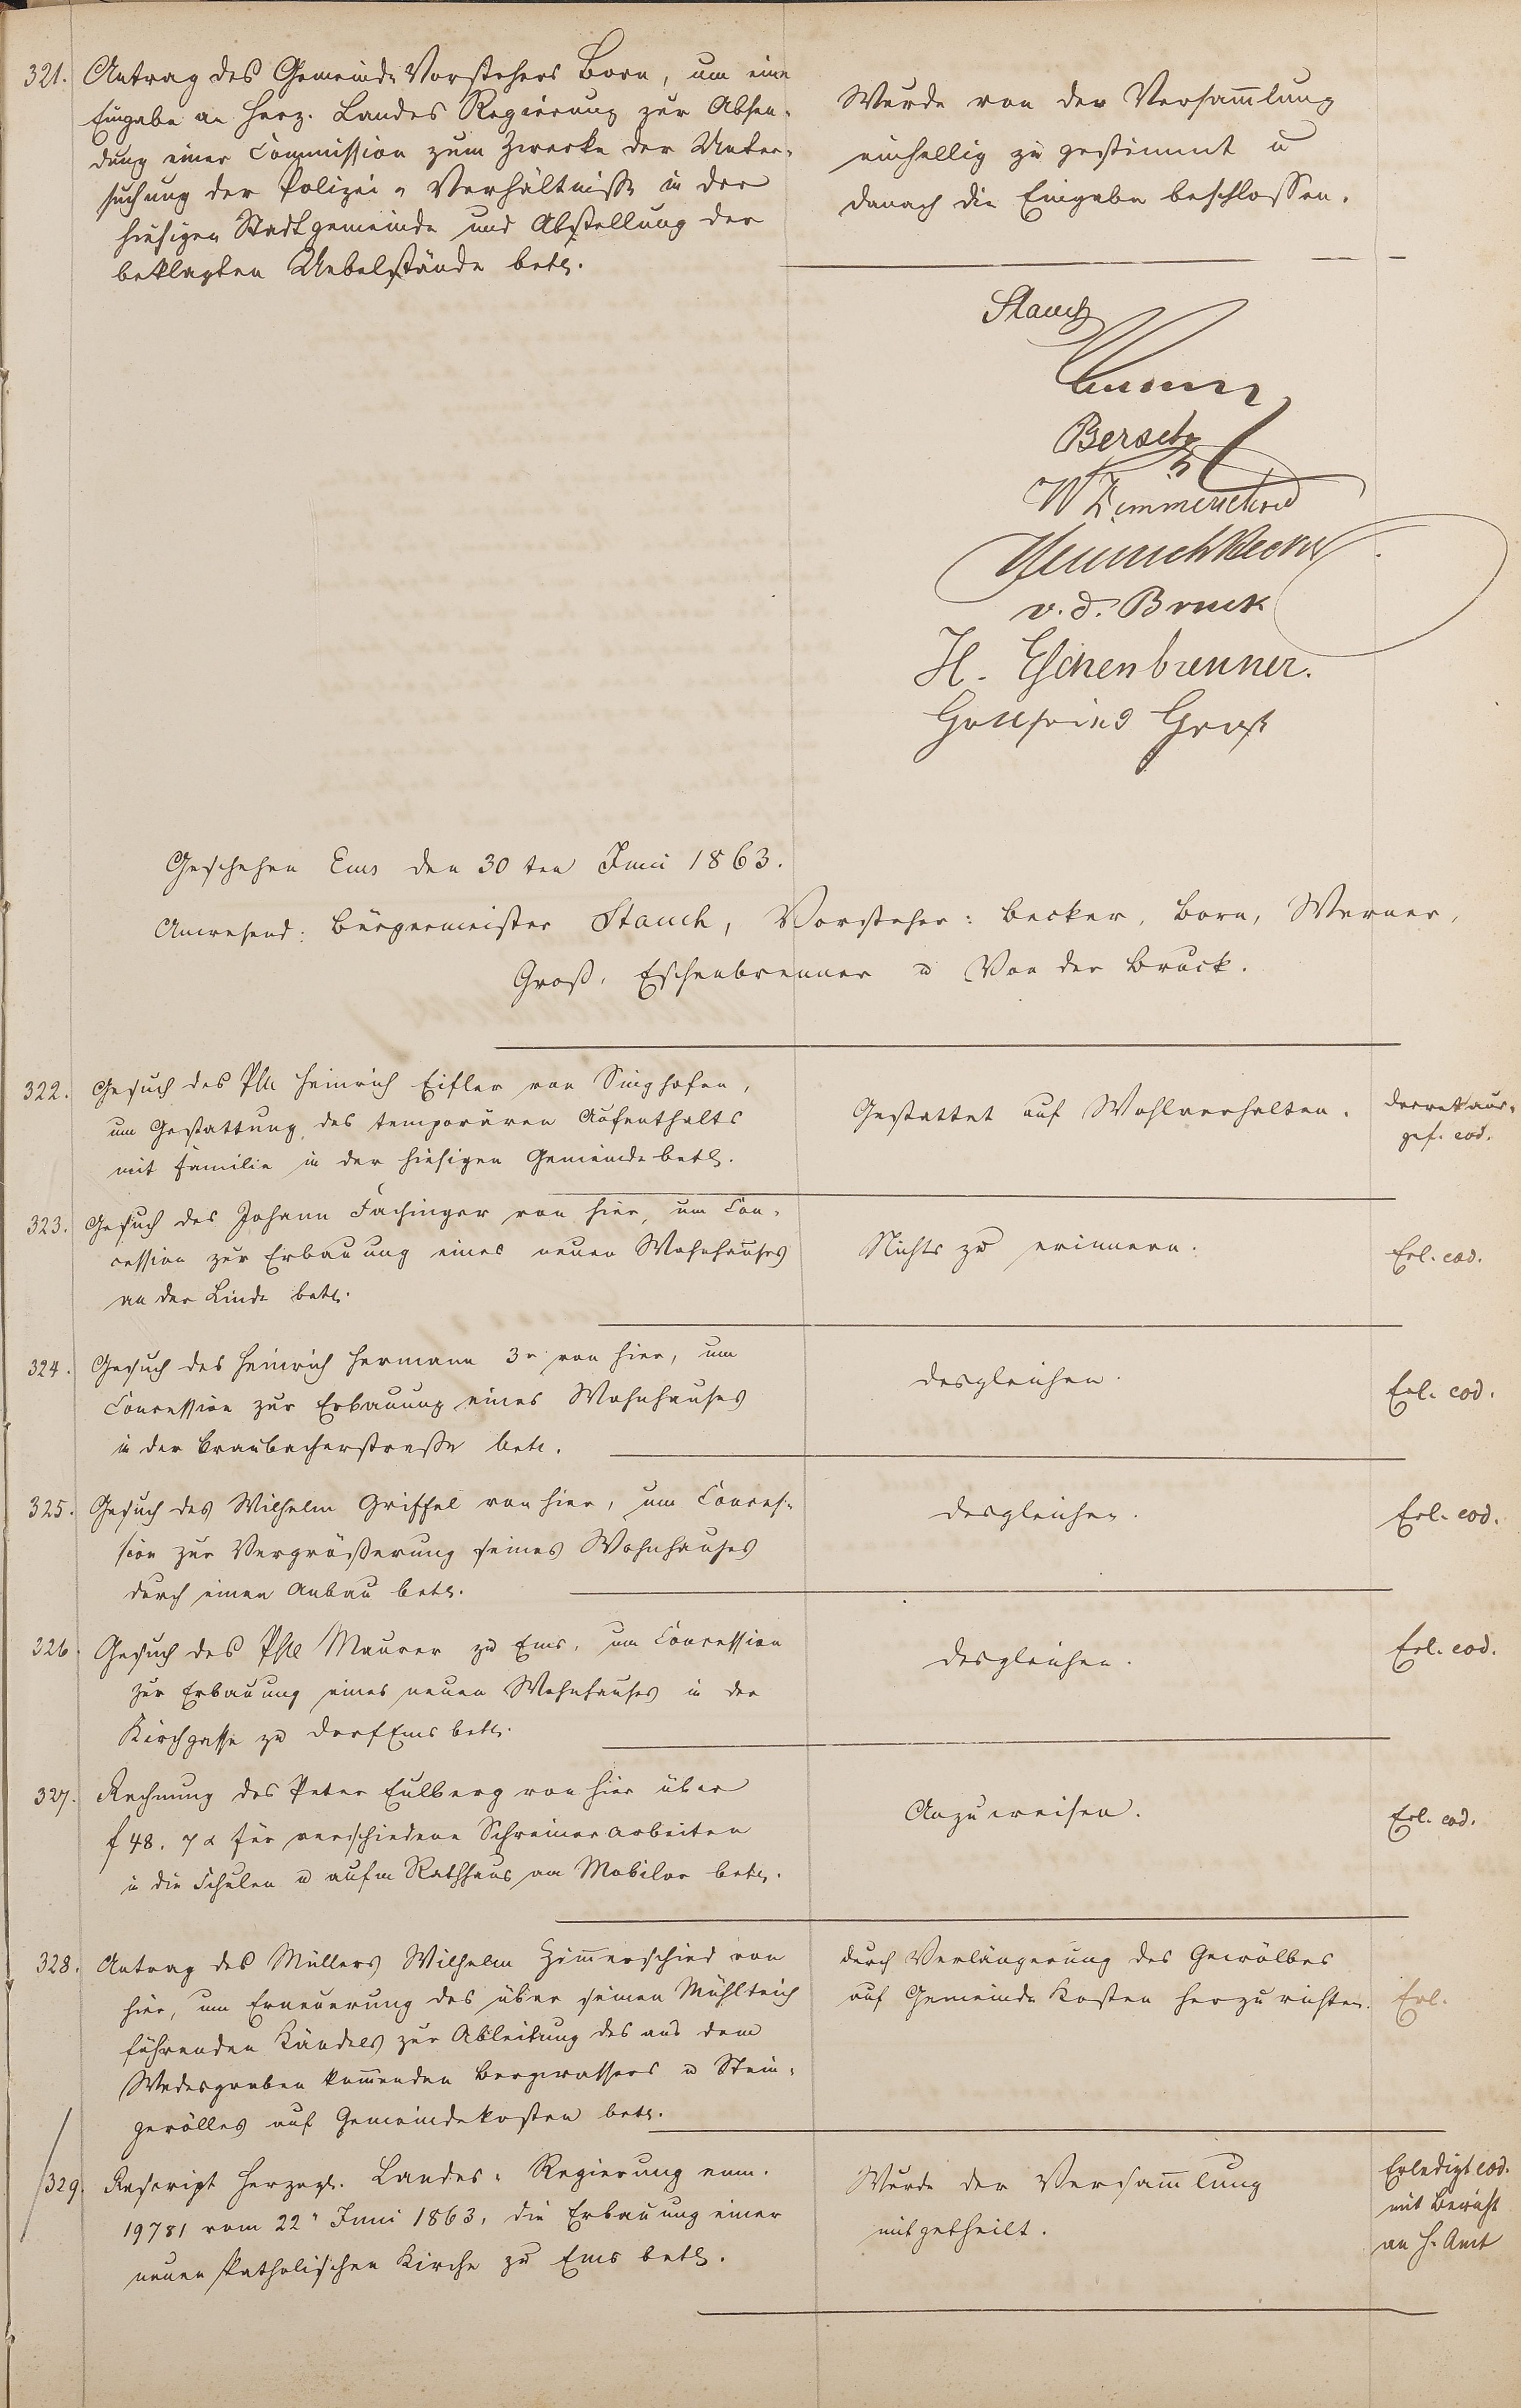 321. Antrag des Gemeinde Vorstehers Born, um eine
Eingabe an Herz. Landes Regierung zur Absen-
dung einer Commission zum Zwecke der Unter-
suchung der Polizei-Verhältnisse in der
hiesigen Stadtgemeinde und Abstellung der
beklagten Uebelstände betr.
Wurde von der Versam̄lung
einhellig zu gestimmt u
danach die Eingabe beschlossen.
Stauch
Born
Bersch
W Zimmerschied
Heinrich Becker
v. d. Bruck
H. Eschenbrenner.
Gottfried Groß
Geschehen Ems den 30ten Juni 1863.
Anwesend: Bürgermeister Stauch, Vorsteher: Becker, Born, Werner,
Groß, Eschenbrenner u Von der Bruck.
322. Gesuch des Phil Heinrich Eifler von Singhofen,
um Gestattung des temporären Aufenthalts
mit Familie in der hiesigen Gemeinde betr.
Gestattet auf Wohlverhalten.
Decret aus-
gef. eod.
323. Gesuch des Johann Fachinger von hier, um Con-
cession zur Erbauung eines neuen Wohnhauses
an der Linde betr.
Nichts zu erinnern.
Erl. eod.
324. Gesuch des Heinrich Hermann 3r von hier, um
Concession zur Erbauung eines Wohnhauses
in der Braubacherstraße betr.
desgleichen.
Erl. eod.
325. Gesuch des Wilhelm Griffel von hier, um Conces-
sion zur Vergrößerung seines Wohnhauses
durch einen Anbau betr.
desgleichen.
Erl. eod.
326. Gesuch des Phil Maurer zu Ems, um Concession
zur Erbauung eines neuen Wohnhauses in der
Kirchgasse zu Dorf Ems betr.
desgleichen.
Erl. eod.
327. Rechnung des Peter Eulberg von hier über
f 48. 7 x für verschiedene Schreinerarbeiten
in die Schulen u aufm Rathhaus am Mobilar betr.
Anzuweisen.
Erl. eod.
328. Antrag des Müllers Wilhelm Zim̄erschied von
hier, um Erneuerung des über seinen Mühlteich
führenden Kändels zur Ableitung des aus dem
Wedesgraben kom̄enden Bergwassers u Stein-
gerölles auf Gemeindekosten betr.
durch Verlängerung des Gewölbes
auf Gemeinde Kosten herzurichten.
Erl.
329. Rescript Herzogl. Landes-Regierung num.
19781 vom 22n Juni 1863, die Erbauung einer
neuen katholischen Kirche zu Ems betr.
Wurde der Versam̄lung
mitgetheilt.
Erledigt eod.
mit Bericht
an H. Amt